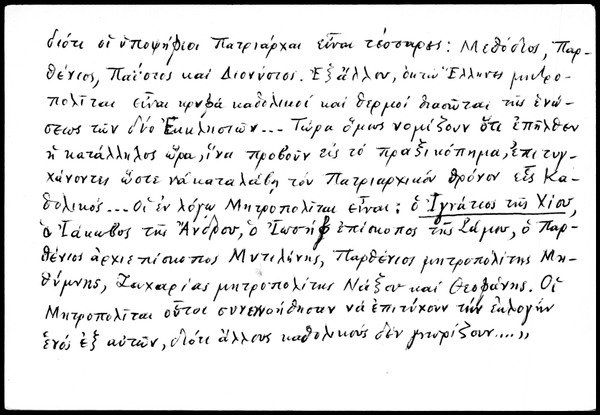 διότι οἱ ὑποψήφιοι Πατριάρχαι εἶναι τέσσαρες: Μεθόδιος, Παρ-
θένιος, Παΐσιος καὶ Διονύσιος. Ἐξ ἄλλου, ὀκτὼ Ἕλληνες μητρο-
πολῖται εἶναι κρυφὰ καθολικοὶ καὶ θερμοὶ θιασῶται τῆς ἑνώ-
σεως τῶν δύο Ἐκκλησιῶν... Τώρα ὅμως νομίζουν ὅτι ἐπῆλθεν
ἡ κατάλληλος ὥρα, ἵνα προβοῦν εἰς τὸ πραξικόπημα, ἐπιτυγ-
χάνοντες ὥστε νὰ καταλάβῃ τὸν Πατριαρχικὸν θρόνον εἷς Κα-
θολικός... Οἱ ἐν λόγῳ Μητροπολῖται εἶναι: ὁ Ἰγνάτιος τῆς Χίου,
ὁ Ἰάκωβος τῆς Ἄνδρου, ὁ Ἰωσὴφ ἐπίσκοπος τῆς Σάμου, ὁ Παρ-
θένιος ἀρχιεπίσκοπος Μυτιλήνης, Παρθένιος μητροπολίτης Μη-
θύμνης, Ζαχαρίας μητροπολίτης Νάξου καὶ Θεοφάνης. Οἱ
Μητροπολῖται οὗτοι συνενοήθησαν νὰ ἐπιτύχουν τὴν ἐκλογὴν
ἑνὸς ἐξ αὐτῶν, διότι ἄλλους καθολικοὺς δὲν γνωρίζουν....»